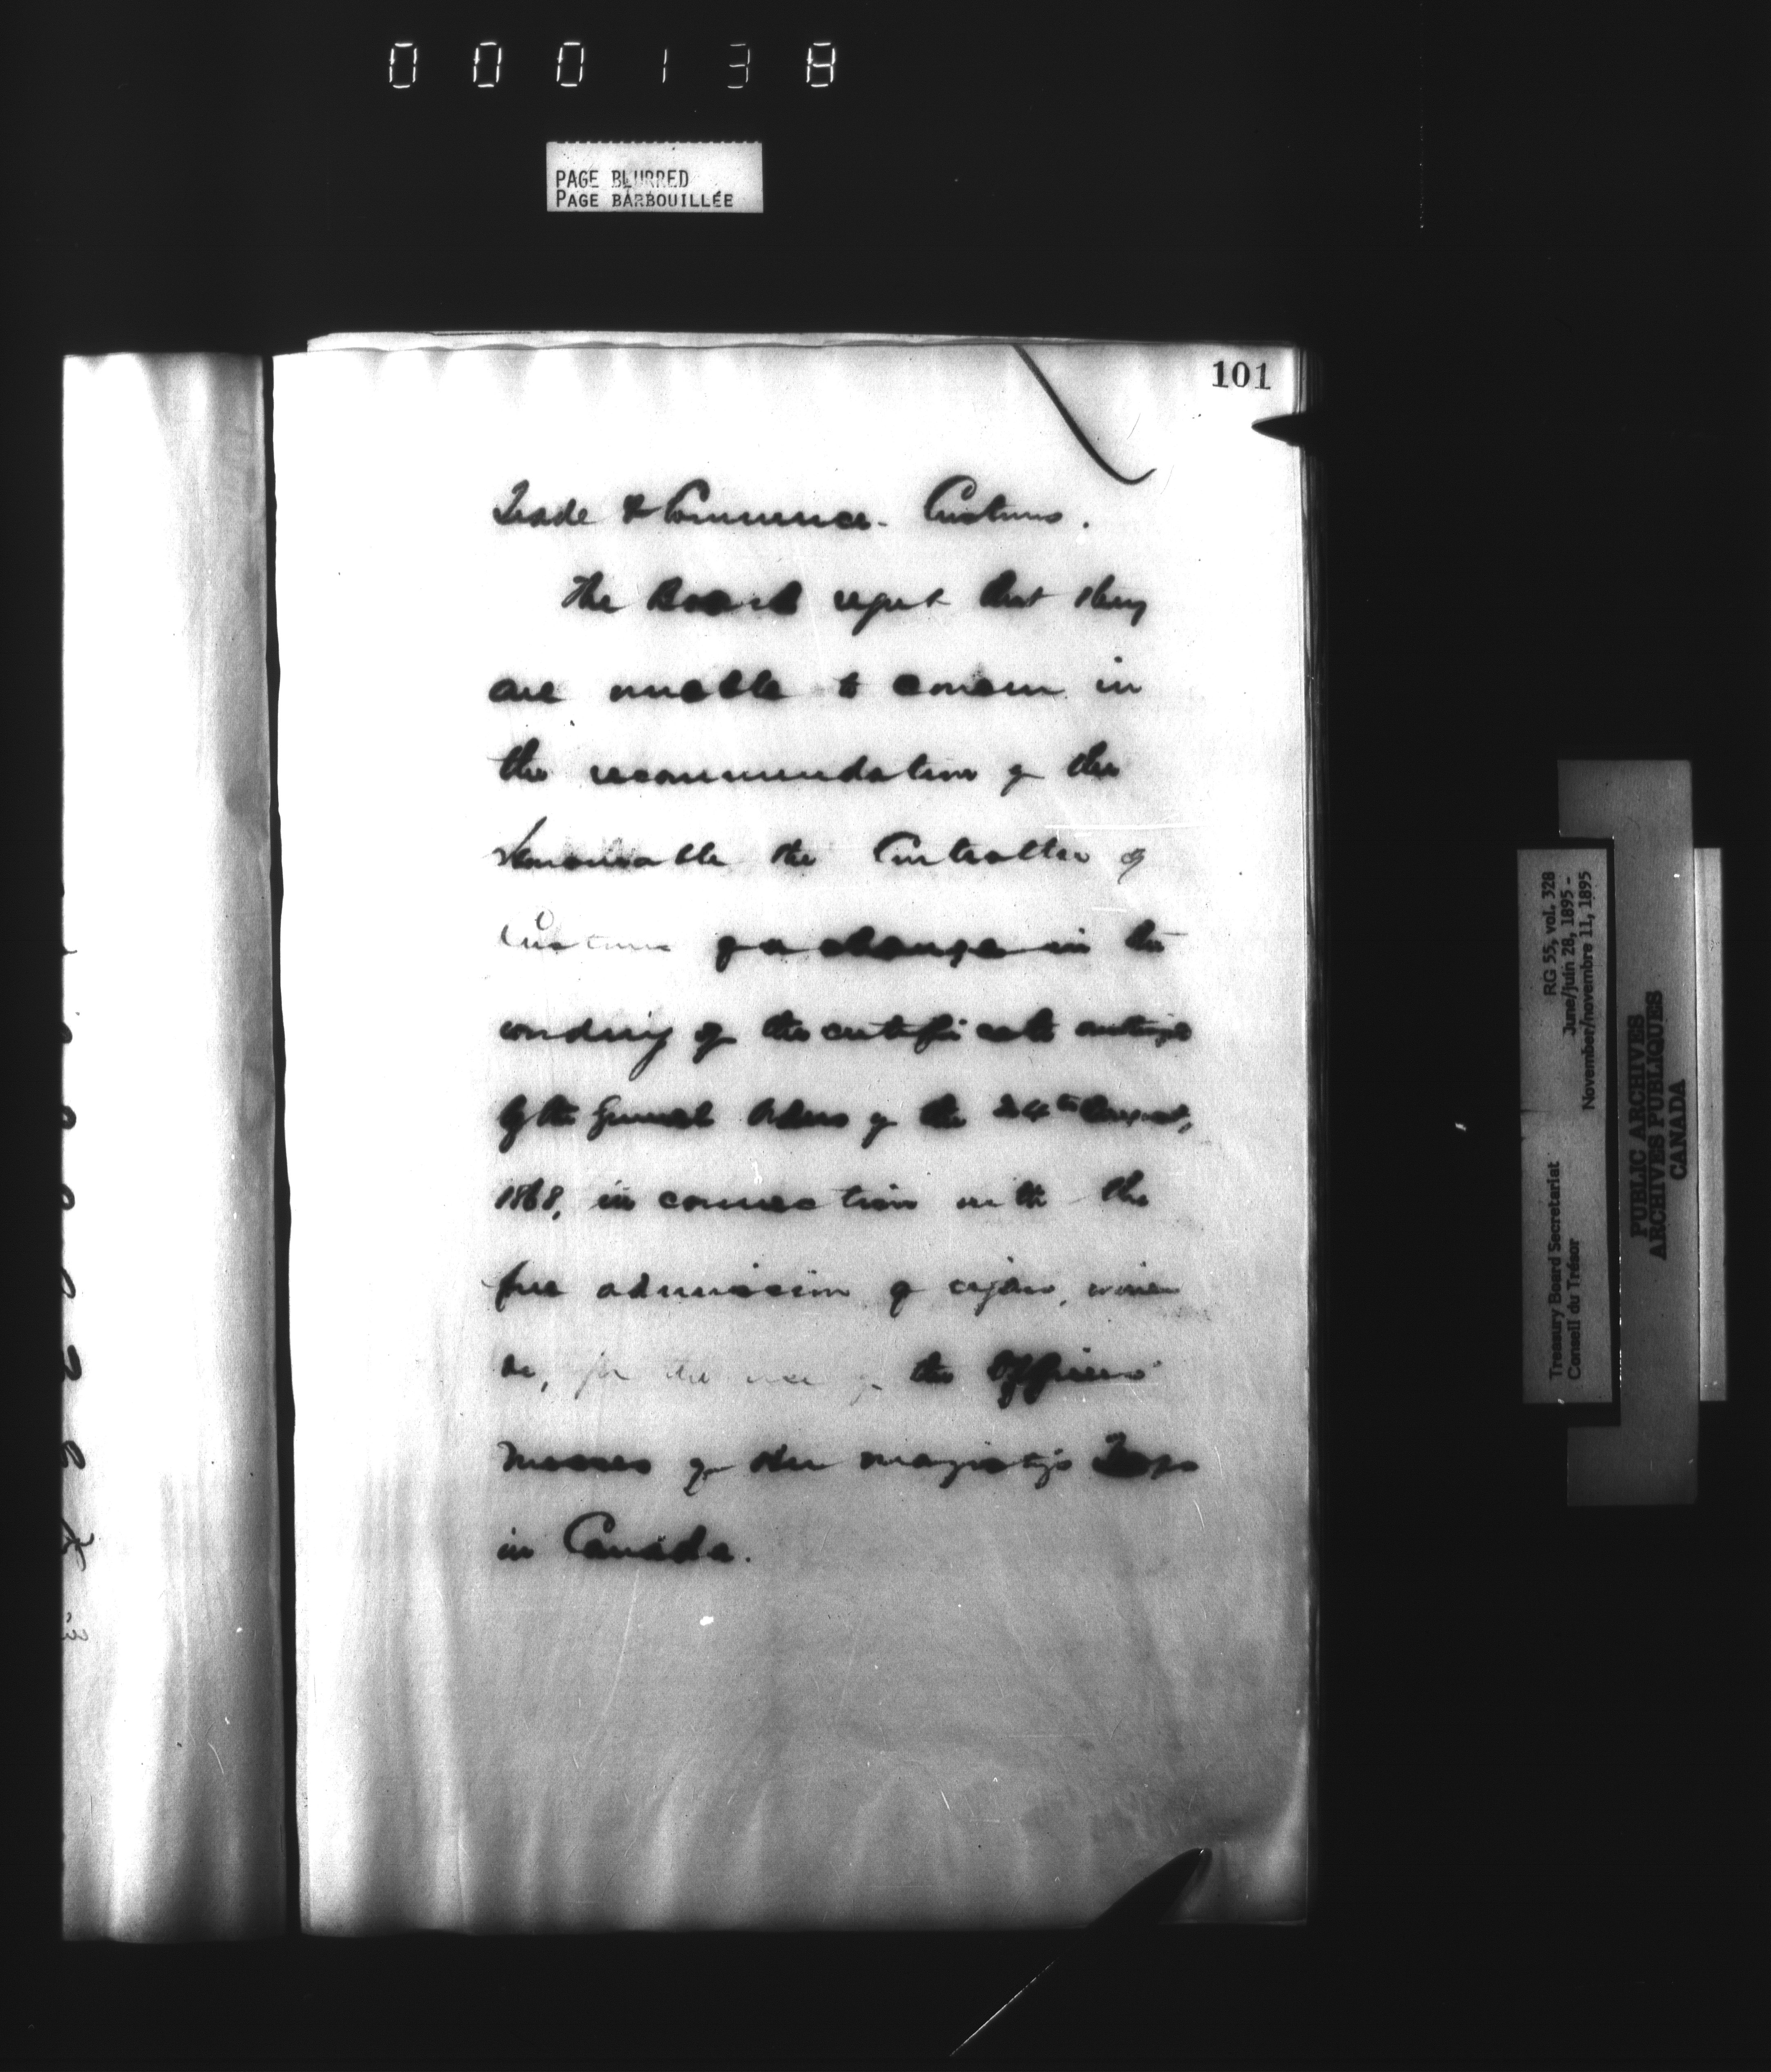 000138
PAGE BLURRED
PAGE BARBOUILLÉE
101
Trade & Commerce - Customs.
The Board report that they
are unable to concur in
the recommendation of the
Honourable the Controller of
Customs of a change in the
wording of the certificate
by the General Orders of the 24th August,
1868, in connection with the
free admission of cigars, wines
&c, for the use of the Officers
Messes of Her Majesty's Troops
in Canada.
Treasury Board Secretariat RG 55, vol. 328
Conseil du Trésor June/juin 28, 1895 -
November/novembre 11, 1895
PUBLIC ARCHIVES
ARCHIVES PUBLIQUES
CANADA